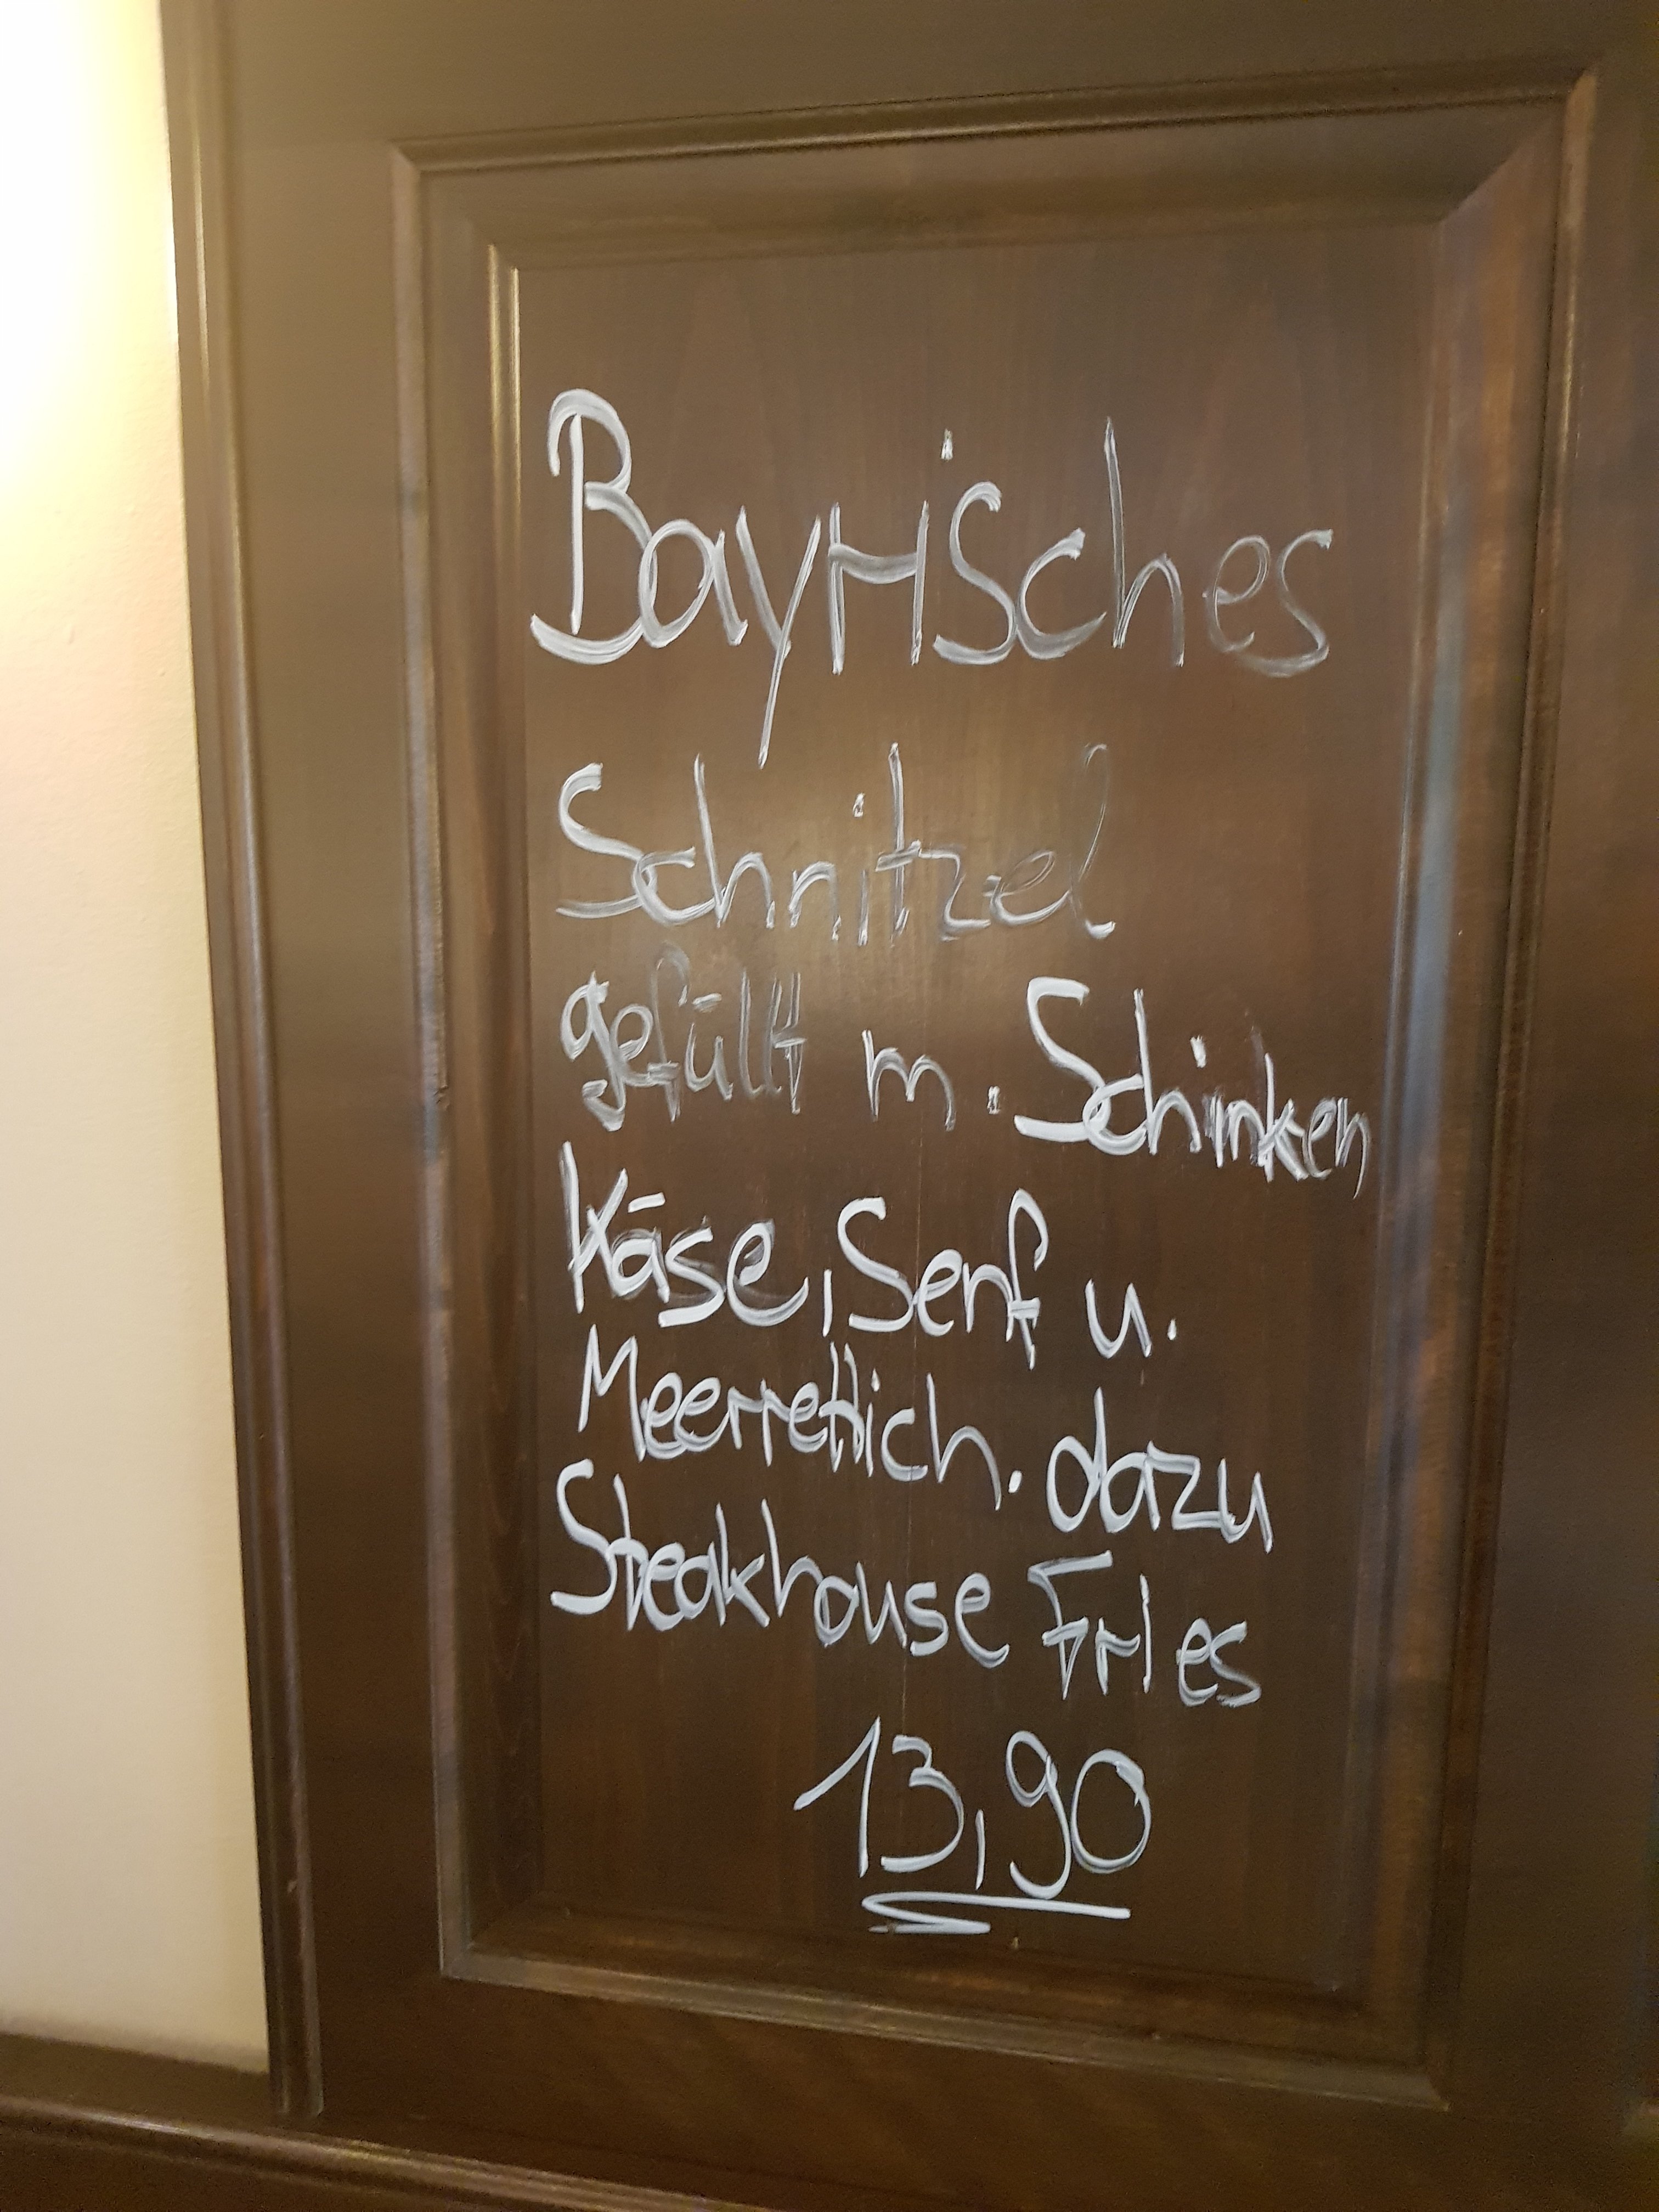 Bayrisches
Schnitzel
gefüllt m. Schinken
Käse, Senf u.
Meerrettich. dazu
Steakhouse Fries
13,90